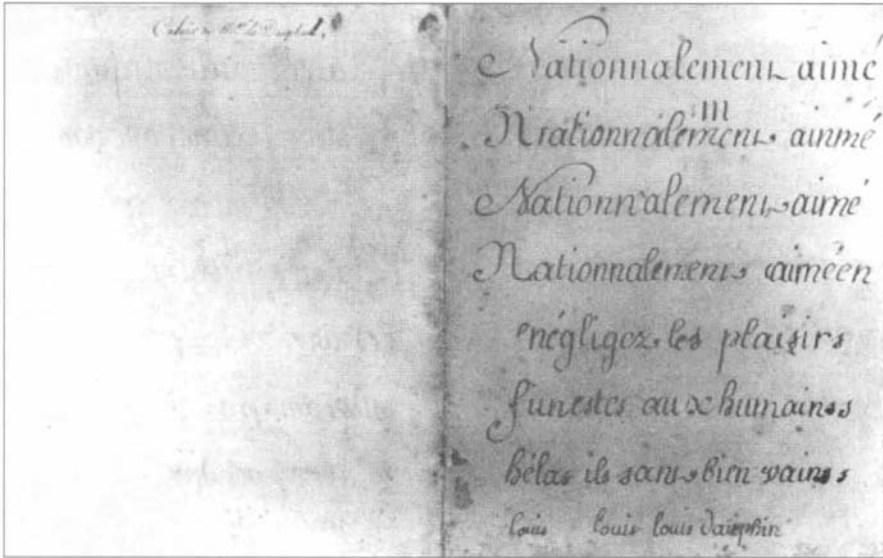 Cahier de
Nationnalement aimé
m
Nrationnalement ainmé
Nationnalement aimé
Nationnalement aiméen
négligez les plaisirs
funestes aux humainss
hélas ils sont bien vains s
louis louis louis dauphin